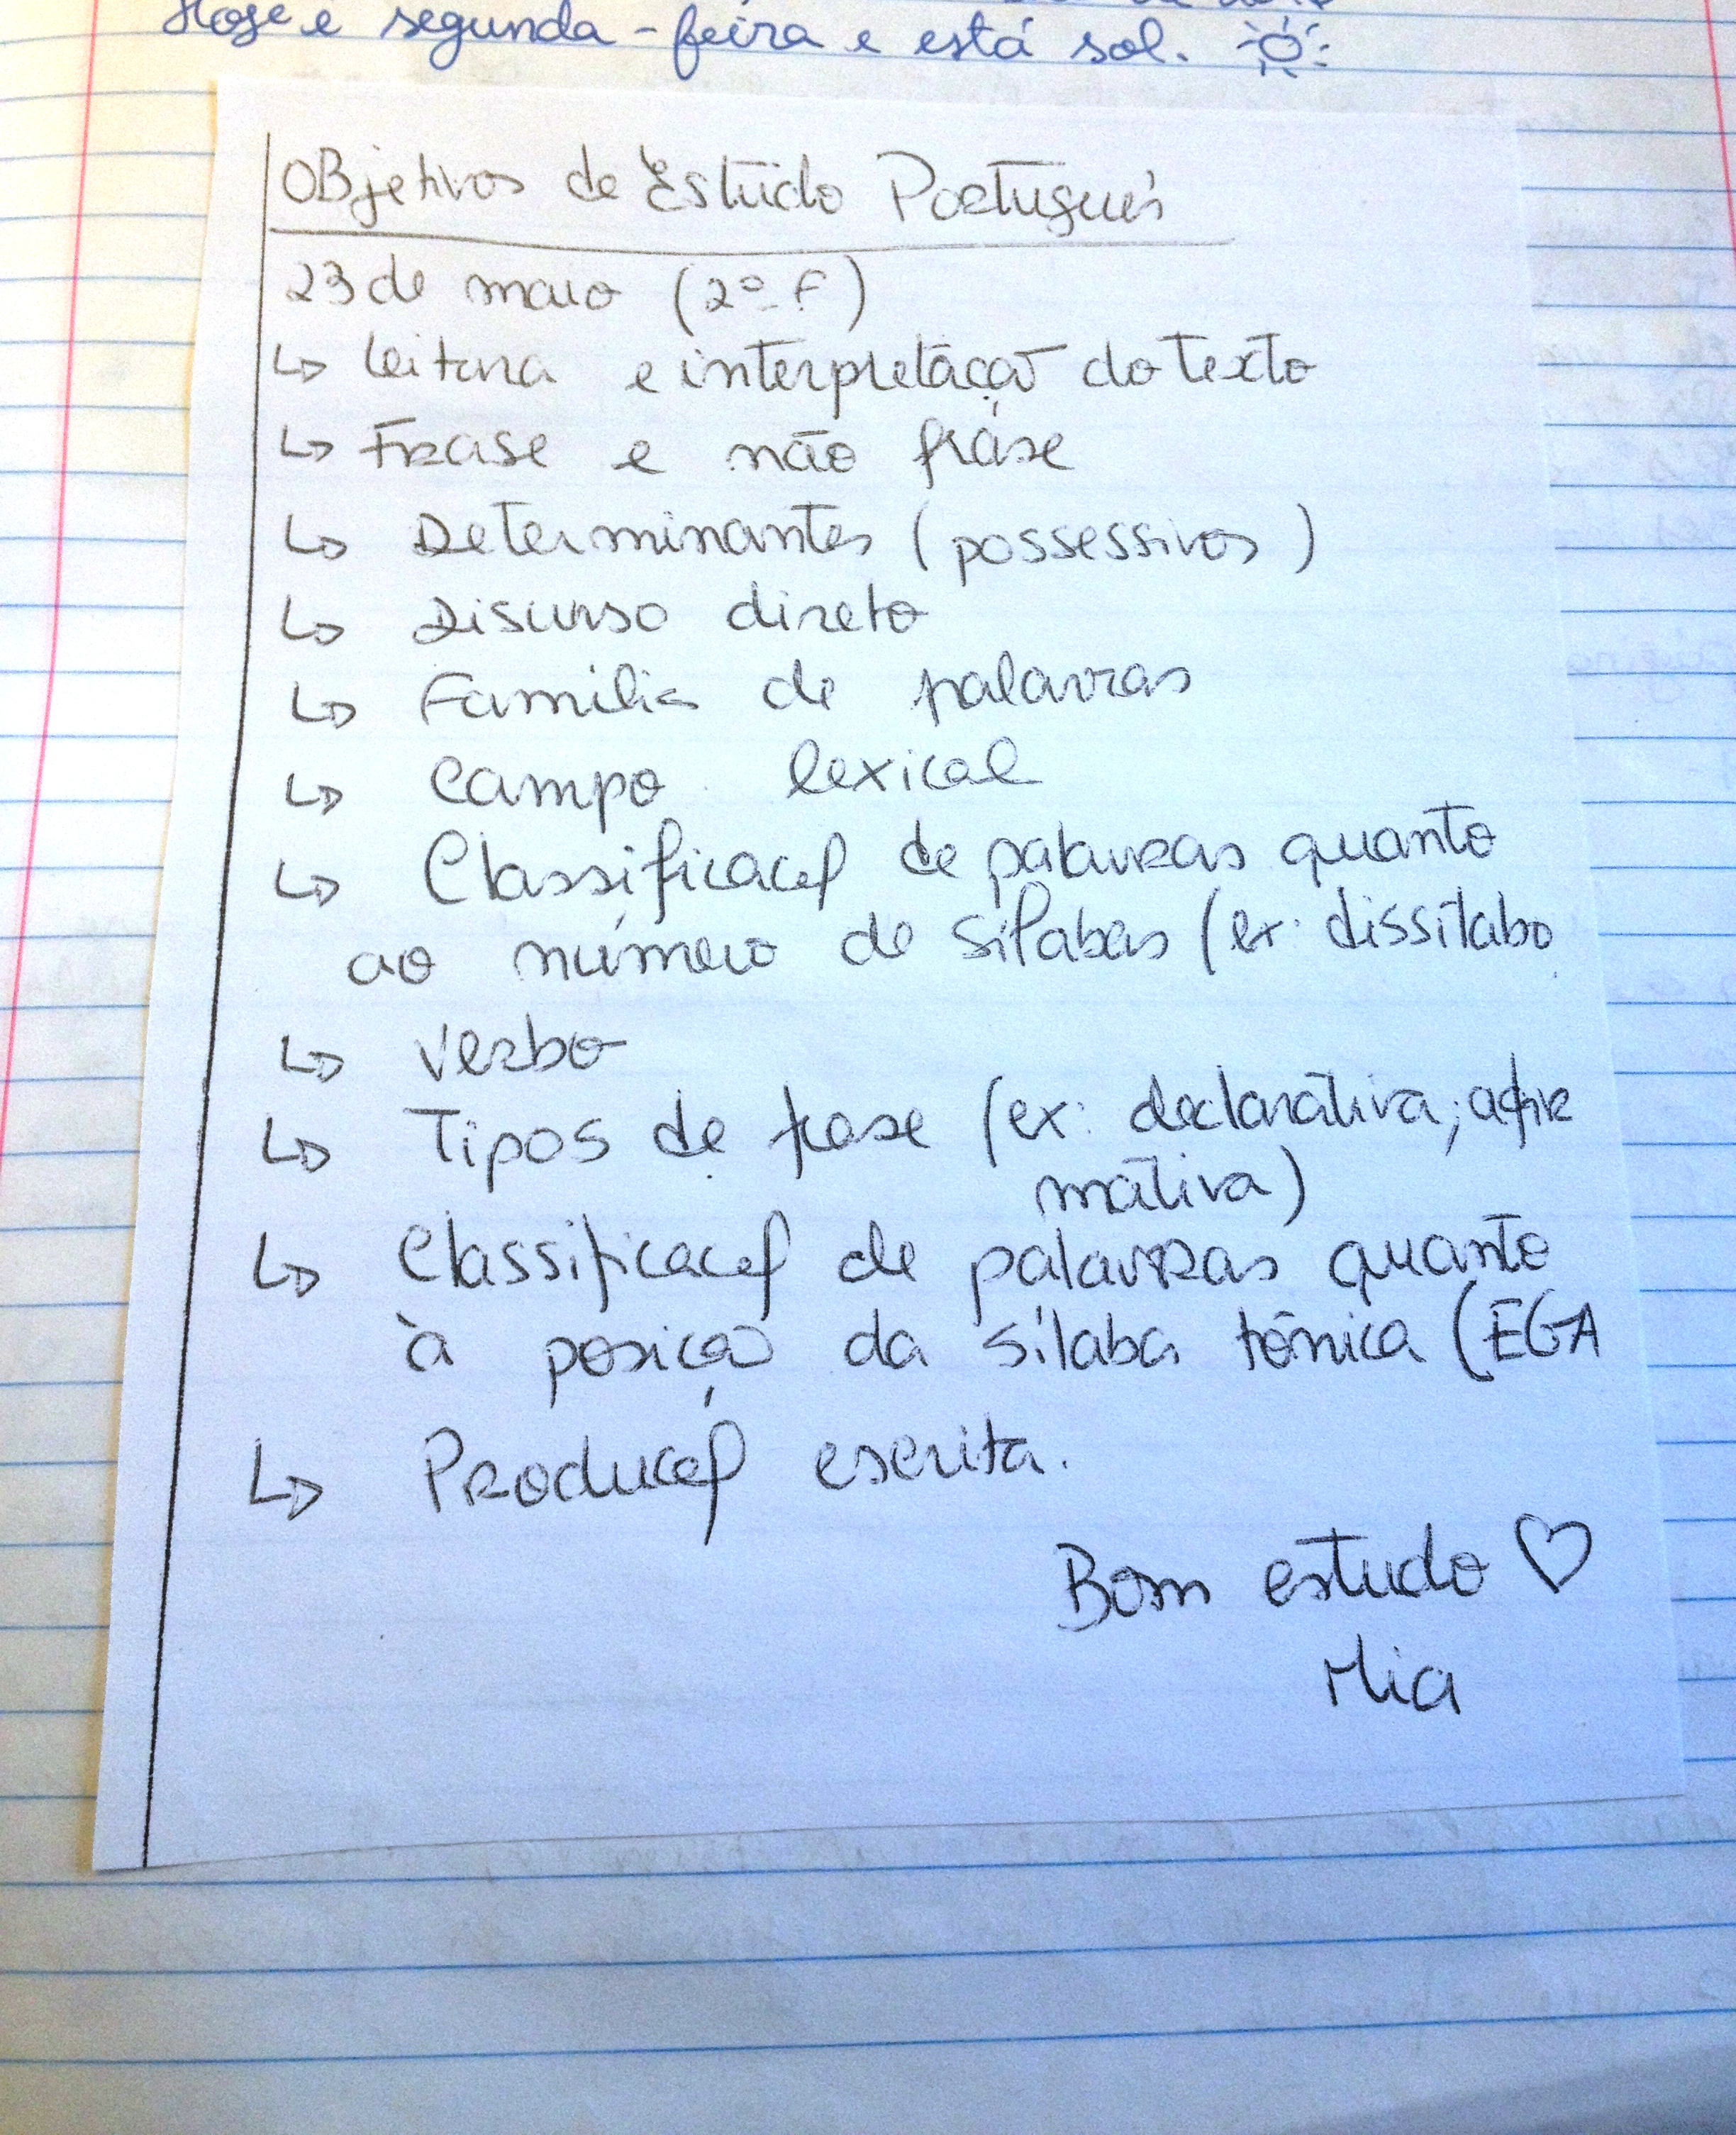 Hoje é segunda-feira e está sol.
Objetivos de Estudo Português
23 de maio (2ª F)
↳ Leitura e interpretação do texto
↳ Frase e não frase
↳ Determinantes (possessivos)
↳ Discurso direto
↳ Família de palavras
↳ Campo lexical
↳ Classificação de palavras quanto
ao número de sílabas (ex: dissílabo
↳ Verbo
↳ Tipos de frase (ex: declarativa; afir
mativa)
↳ Classificação de palavras quanto
à posição da sílaba tónica (EGA
↳ Produção escrita.
Bom estudo ♡
Mia